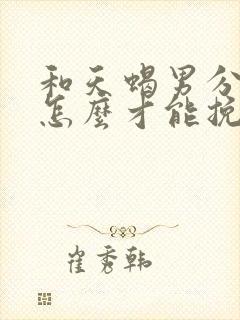 和天蝎男分
怎麼才能挽
崔秀韩